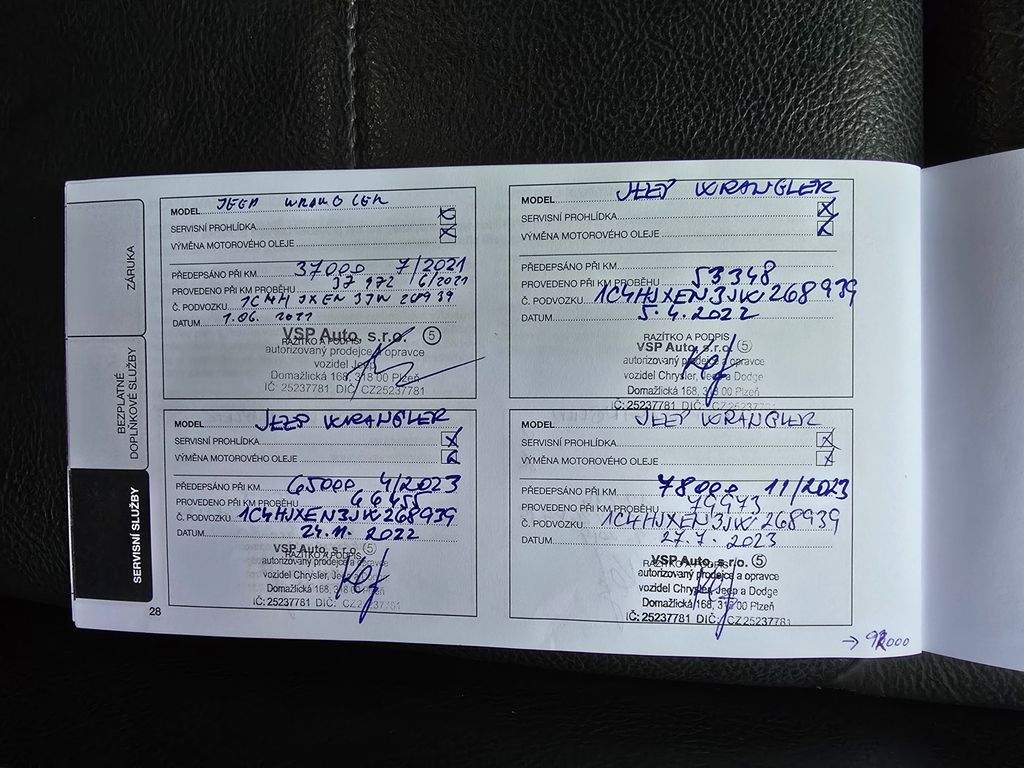 ZÁRUKA
BEZPLATNÉ
DOPLŇKOVÉ SLUŽBY
SERVISNÍ SLUŽBY
MODEL JEEP WRANGLER
SERVISNÍ PROHLÍDKA X
VÝMĚNA MOTOROVÉHO OLEJE X
PŘEDEPSÁNO PŘI KM 37000 7/2021
PROVEDENO PŘI KM PROBĚHU 37 972 6/2021
Č. PODVOZKU 1C4HJXEN3JW268939
DATUM 1.06. 2021
RAZÍTKO A PODPIS
VSP Auto, s.r.o. 5
autorizovaný prodejce a opravce
vozidel Jeep
Domažlická 168, 318 00 Plzeň
IČ: 25237781 DIČ: CZ25237781
MODEL JEEP WRANGLER
SERVISNÍ PROHLÍDKA X
VÝMĚNA MOTOROVÉHO OLEJE X
PŘEDEPSÁNO PŘI KM
PROVEDENO PŘI KM PROBĚHU 53348
Č. PODVOZKU 1C4HJXEN3JW268939
DATUM 5.4.2022
RAZÍTKO A PODPIS
VSP Auto, s.r.o. 5
autorizovaný prodejce a opravce
vozidel Chrysler, Jeep a Dodge
Domažlická 168, 318 00 Plzeň
IČ: 25237781 DIČ: CZ25237781
MODEL JEEP WRANGLER
SERVISNÍ PROHLÍDKA X
VÝMĚNA MOTOROVÉHO OLEJE X
PŘEDEPSÁNO PŘI KM 65000 4/2023
PROVEDENO PŘI KM PROBĚHU 66455
Č. PODVOZKU 1C4HJXEN3JW268939
DATUM 24.11.2022
RAZÍTKO A PODPIS
VSP Auto, s.r.o. 5
autorizovaný prodejce a opravce
vozidel Chrysler, Jeep a Dodge
Domažlická 168, 318 00 Plzeň
IČ: 25237781 DIČ: CZ25237781
MODEL JEEP WRANGLER
SERVISNÍ PROHLÍDKA X
VÝMĚNA MOTOROVÉHO OLEJE X
PŘEDEPSÁNO PŘI KM 78000 11/2023
PROVEDENO PŘI KM PROBĚHU 79943
Č. PODVOZKU 1C4HJXEN3JW268939
DATUM 27.7.2023
RAZÍTKO A PODPIS
VSP Auto, s.r.o. 5
autorizovaný prodejce a opravce
vozidel Chrysler, Jeep a Dodge
Domažlická 168, 318 00 Plzeň
IČ: 25237781 DIČ: CZ25237781
28